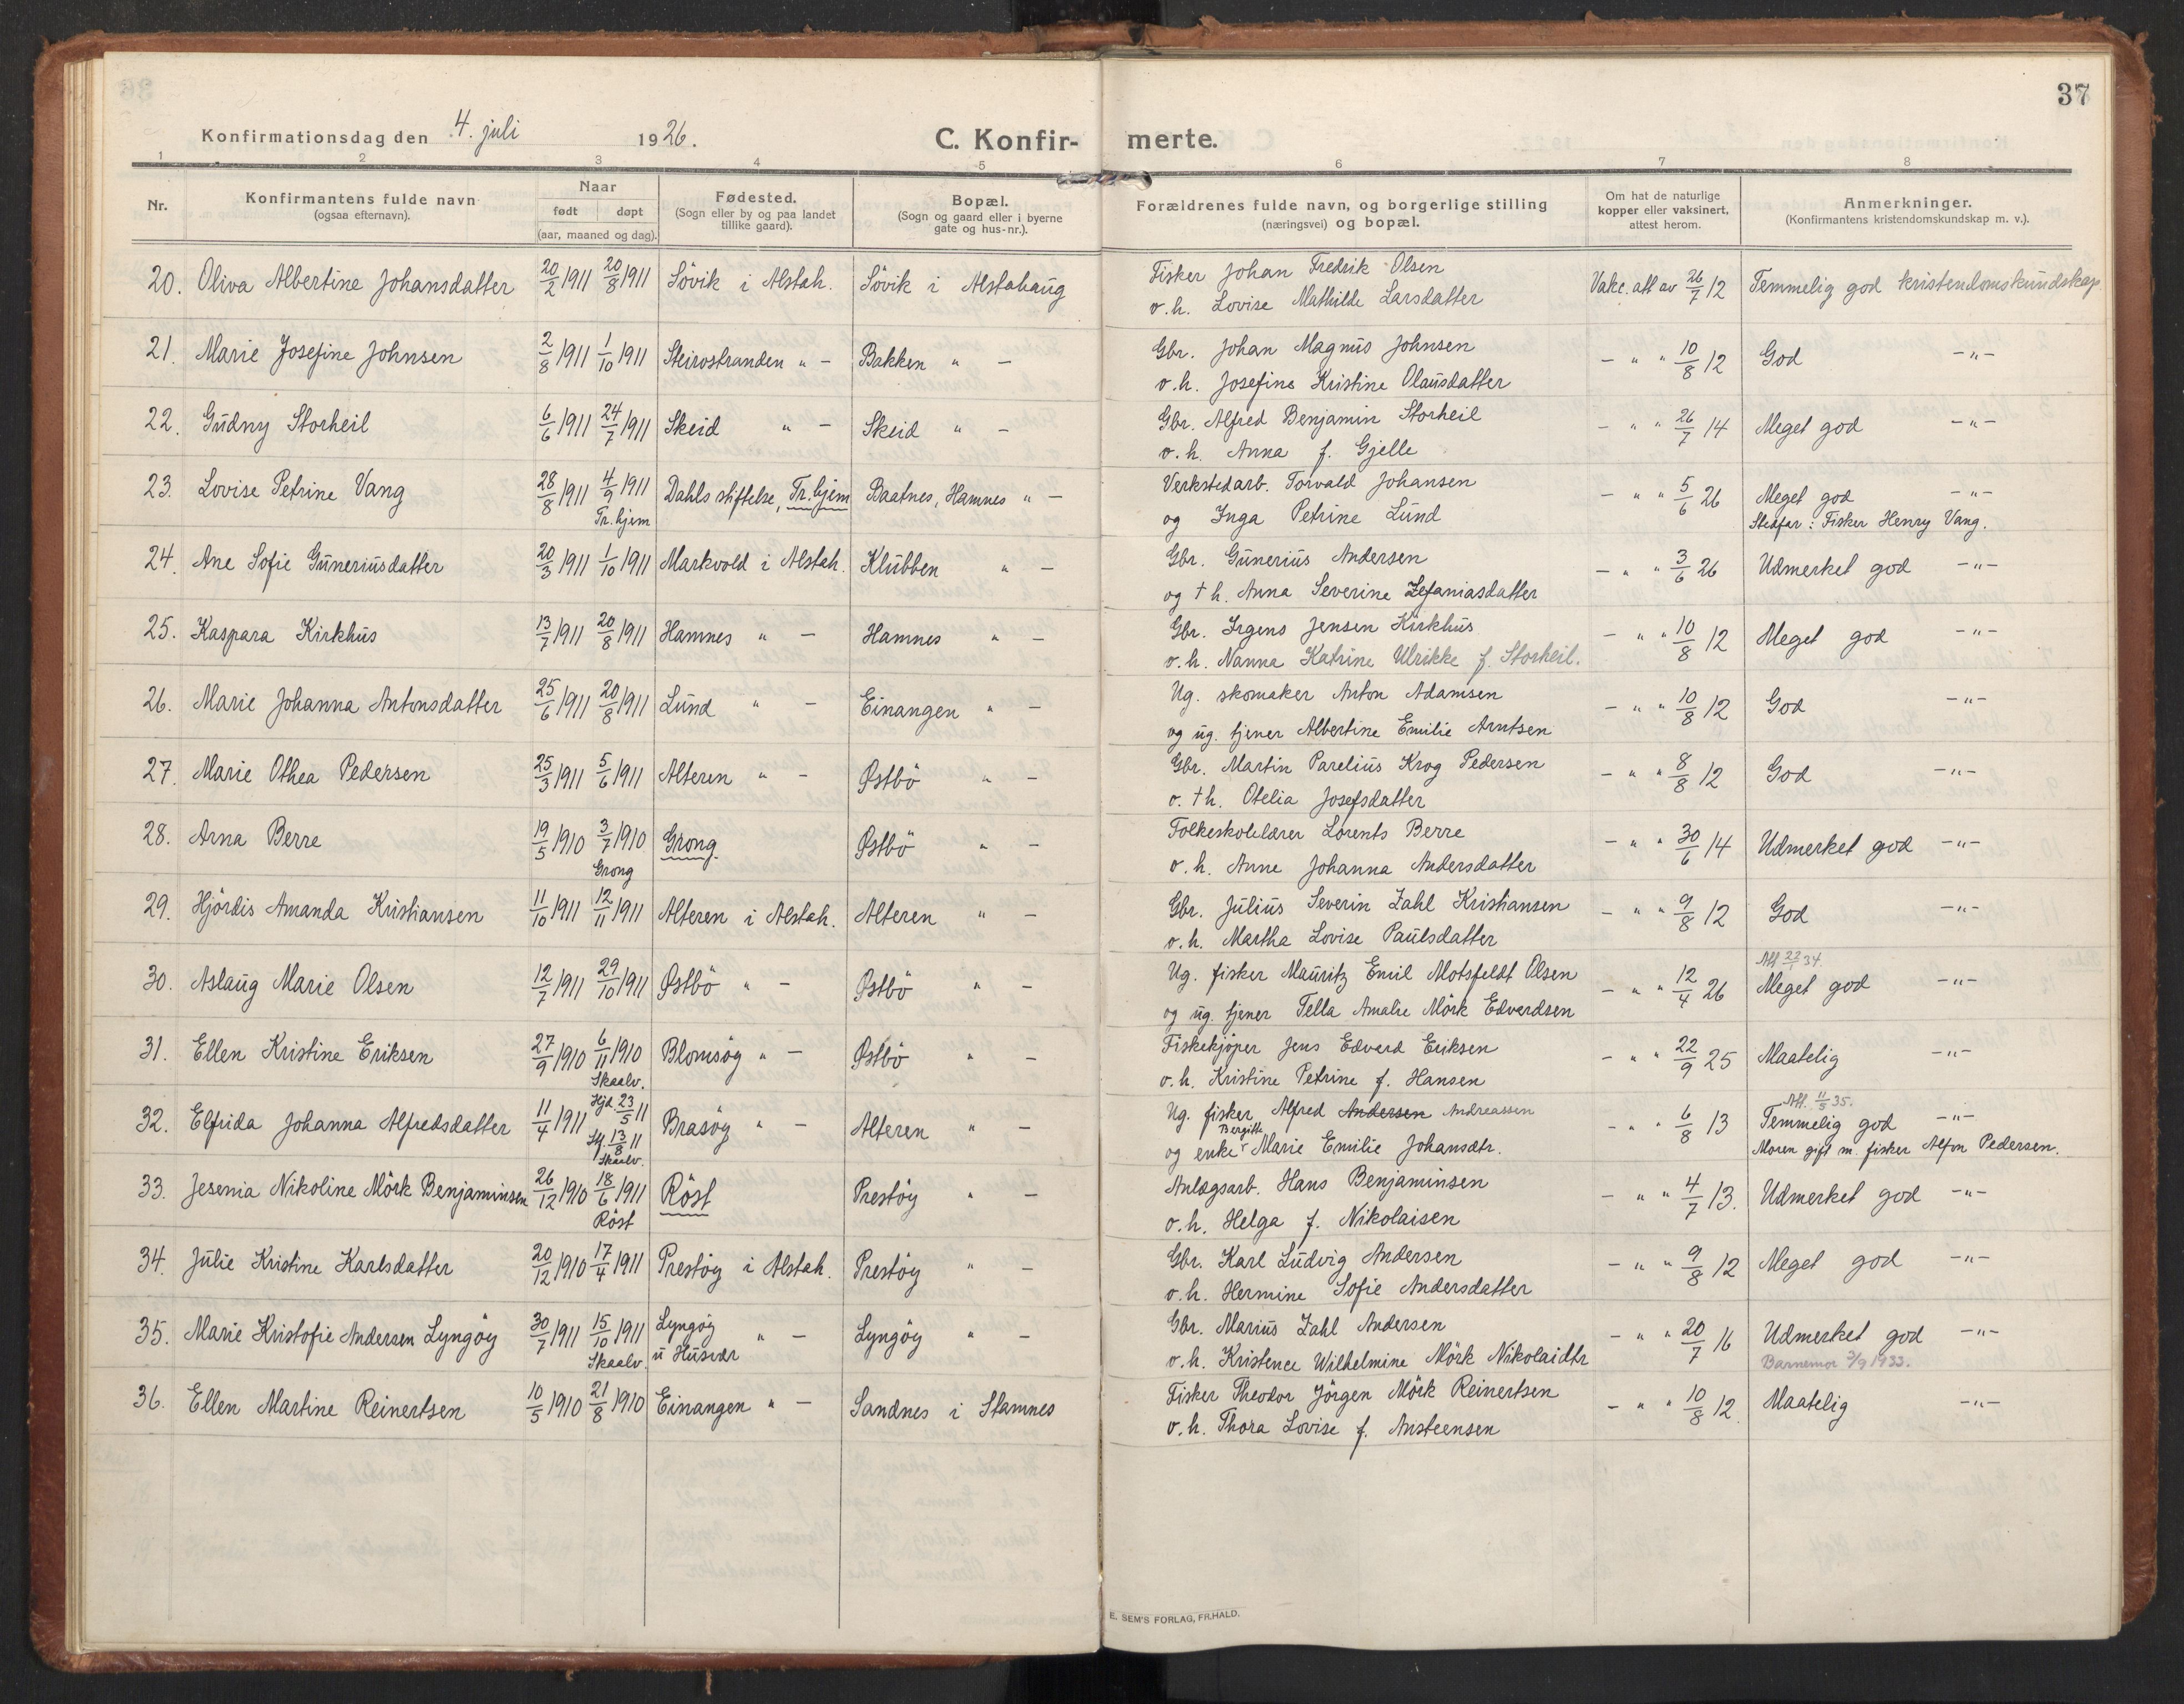 37
Konfirmationsdag den 4. juli 1926. C. Konfir- merte.
1 2 3 4 5 6 7 8
Nr. Konfirmantens fulde navn (ogsaa efternavn). Naar født døpt (aar, maaned og dag). Fødested. (Sogn eller by og paa landet tillike gaard). Bopæl. (Sogn og gaard eller i byerne gate og hus-nr.). Forældrenes fulde navn, og borgerlige stilling (næringsvei) og bopæl. Om hat de naturlige kopper eller vaksinert, attest herom. Anmerkninger. (Konfirmantens kristendomskundskap m. v.).
20. Oliva Albertine Johansdatter 20/2 1911 20/8 1911 Sövik i Alstah. Sövik i Alstahaug Fisker Johan Fredrik Olsen Vakc. att av 26/7 12 Temmelig god kristendomskundskap
o. h. Lovise Mathilde Larsdatter
21. Marie Josefine Johnsen 2/8 1911 1/10 1911 Steirostranden " - Bakken " - Gbr. Johan Magnus Johnsen - " " 10/8 12 God -"-
o. h. Josefine Kristine Olausdatter
22. Gudny Storheil 6/6 1911 24/7 1911 Skeid " - Skeid " - Gbr. Alfred Benjamin Storheil - " " 26/7 14 Meget god -"-
o. h. Anna f. Gjelle
23. Lovise Petrine Vang 28/8 1911 4/9 1911 Tr.hjem Dahls stiftelse, Tr.hjem Baatnes, Hamnes " - Verkstedarb. Torvald Johansen - " " 5/6 26 Meget god -"-
og Inga Petrine Lund Stedfar: Fisker Henry Vang.
24. Ane Sofie Guneriusdatter 20/3 1911 1/10 1911 Markvold i Alstah. Klubben " - Gbr. Gunerius Andersen - " " 3/6 26 Udmerket god -"-
og † h. Anna Severine Zefaniasdatter
25. Kaspara Kirkhus 13/7 1911 20/8 1911 Hamnes " - Hamnes " - Gbr. Irgens Jensen Kirkhus - " " 10/8 12 Meget god -"-
o. h. Nanna Katrine Ulrikke f. Storheil.
26. Marie Johanna Antonsdatter 25/6 1911 20/8 1911 Lund " - Einangen " - Ug. skomaker Anton Adamsen - " " 10/8 12 God -"-
og ug. tjener Albertine Emilie Arntsen
27. Marie Othea Pedersen 25/3 1911 5/6 1911 Alteren " - Østbö " - Gbr. Martin Parelius Krog Pedersen - " " 8/8 12 God -"-
o. † h. Otelia Josefsdatter
28. Arna Berre 19/5 1910 3/7 1910 Grong Grong. Østbö " - Folkeskolelærer Lorents Berre - " " 30/6 14 Udmerket god -"-
o. h. Anne Johanna Andersdatter
29. Hjördis Amanda Kristiansen 11/10 1911 12/11 1911 Alteren i Alstah. Alteren " - Gbr. Julius Severin Zahl Kristiansen - " " 9/8 12 God -"-
o. h. Martha Lovise Paulsdatter
30. Aslaug Marie Olsen 12/7 1911 29/10 1911 Østbö " - Østbö " - Ug. fisker Mauritz Emil Motsfeldt Olsen - " " 12/4 26 Meget god -"-
og ug. tjener Tella Amalie Mörk Edvardsen
31. Ellen Kristine Eriksen 27/9 1910 6/11 1910 Skaalv. Blomsöy " - Østbö " - Fiskekjöper Jens Edvard Eriksen - " " 22/9 25 Maatelig -"-
o. h. Kristine Petrine f. Hansen
32. Elfrida Johanna Alfredsdatter 11/4 1911 Hjd. 23/5 11 Sty. 13/8 11 Skaalv. Brasöy " - Alteren " - Ug. fisker Alfred Andersen Andreassen - " " 6/8 13 Att. 11/5 35. Temmelig god -"-
og enke Bergitte Marie Emilie Johansdtr. Moren gift m. fisker Alfon Pedersen.
33. Jesenia Nikoline Mörk Benjaminsen 26/12 1910 18/6 1911 Röst Röst Prestöy " - Anlægsarb. Hans Benjaminsen - " " 4/7 13. Udmerket god -"-
o. h. Helga f. Nikolaisen
34. Julie Kristine Karlsdatter 20/12 1910 17/4 1911 Prestöy i Alstah. Prestöy " - Gbr. Karl Ludvig Andersen - " " 9/8 12 Meget god -"-
o. h. Hermine Sofie Andersdatter
35. Marie Kristofie Andersen Lyngöy 30/7 1911 15/10 1911 Skaalv. Lyngöy u Husvær " - Lyngöy " - Gbr. Marius Zahl Andersen - " " 20/7 16 Udmerket god -"-
o. h. Kristence Wilhelmine Mörk Nikolaidtr Barnemor 3/9 1933.
36. Ellen Martine Reinertsen 10/5 1910 21/8 1910 Einangen " - Sandnes i Stamnes Fisker Theodor Jörgen Mörk Reinertsen - " " 10/8 12. Maatelig -"-
o. h. Thora Lovise f. Ansteensen
E. SEM'S FORLAG, FR.HALD.